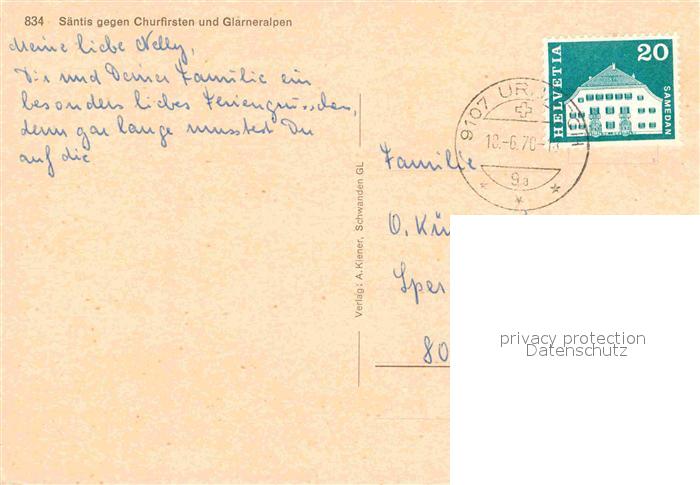 834 Säntis gegen Churfirsten und Glarneralpen
Meine liebe Nelly,
Dir und Deiner Familie ein
besonders liebes Feriengrüsschen,
denn gar lange musstest Du
auf die
Verlag: A. Kiener, Schwanden GL
HELVETIA
20
SAMEDAN
9107 UR
18.-6.70-1
9a
Familie
O. Kü
Sper
80
privacy protection
Datenschutz